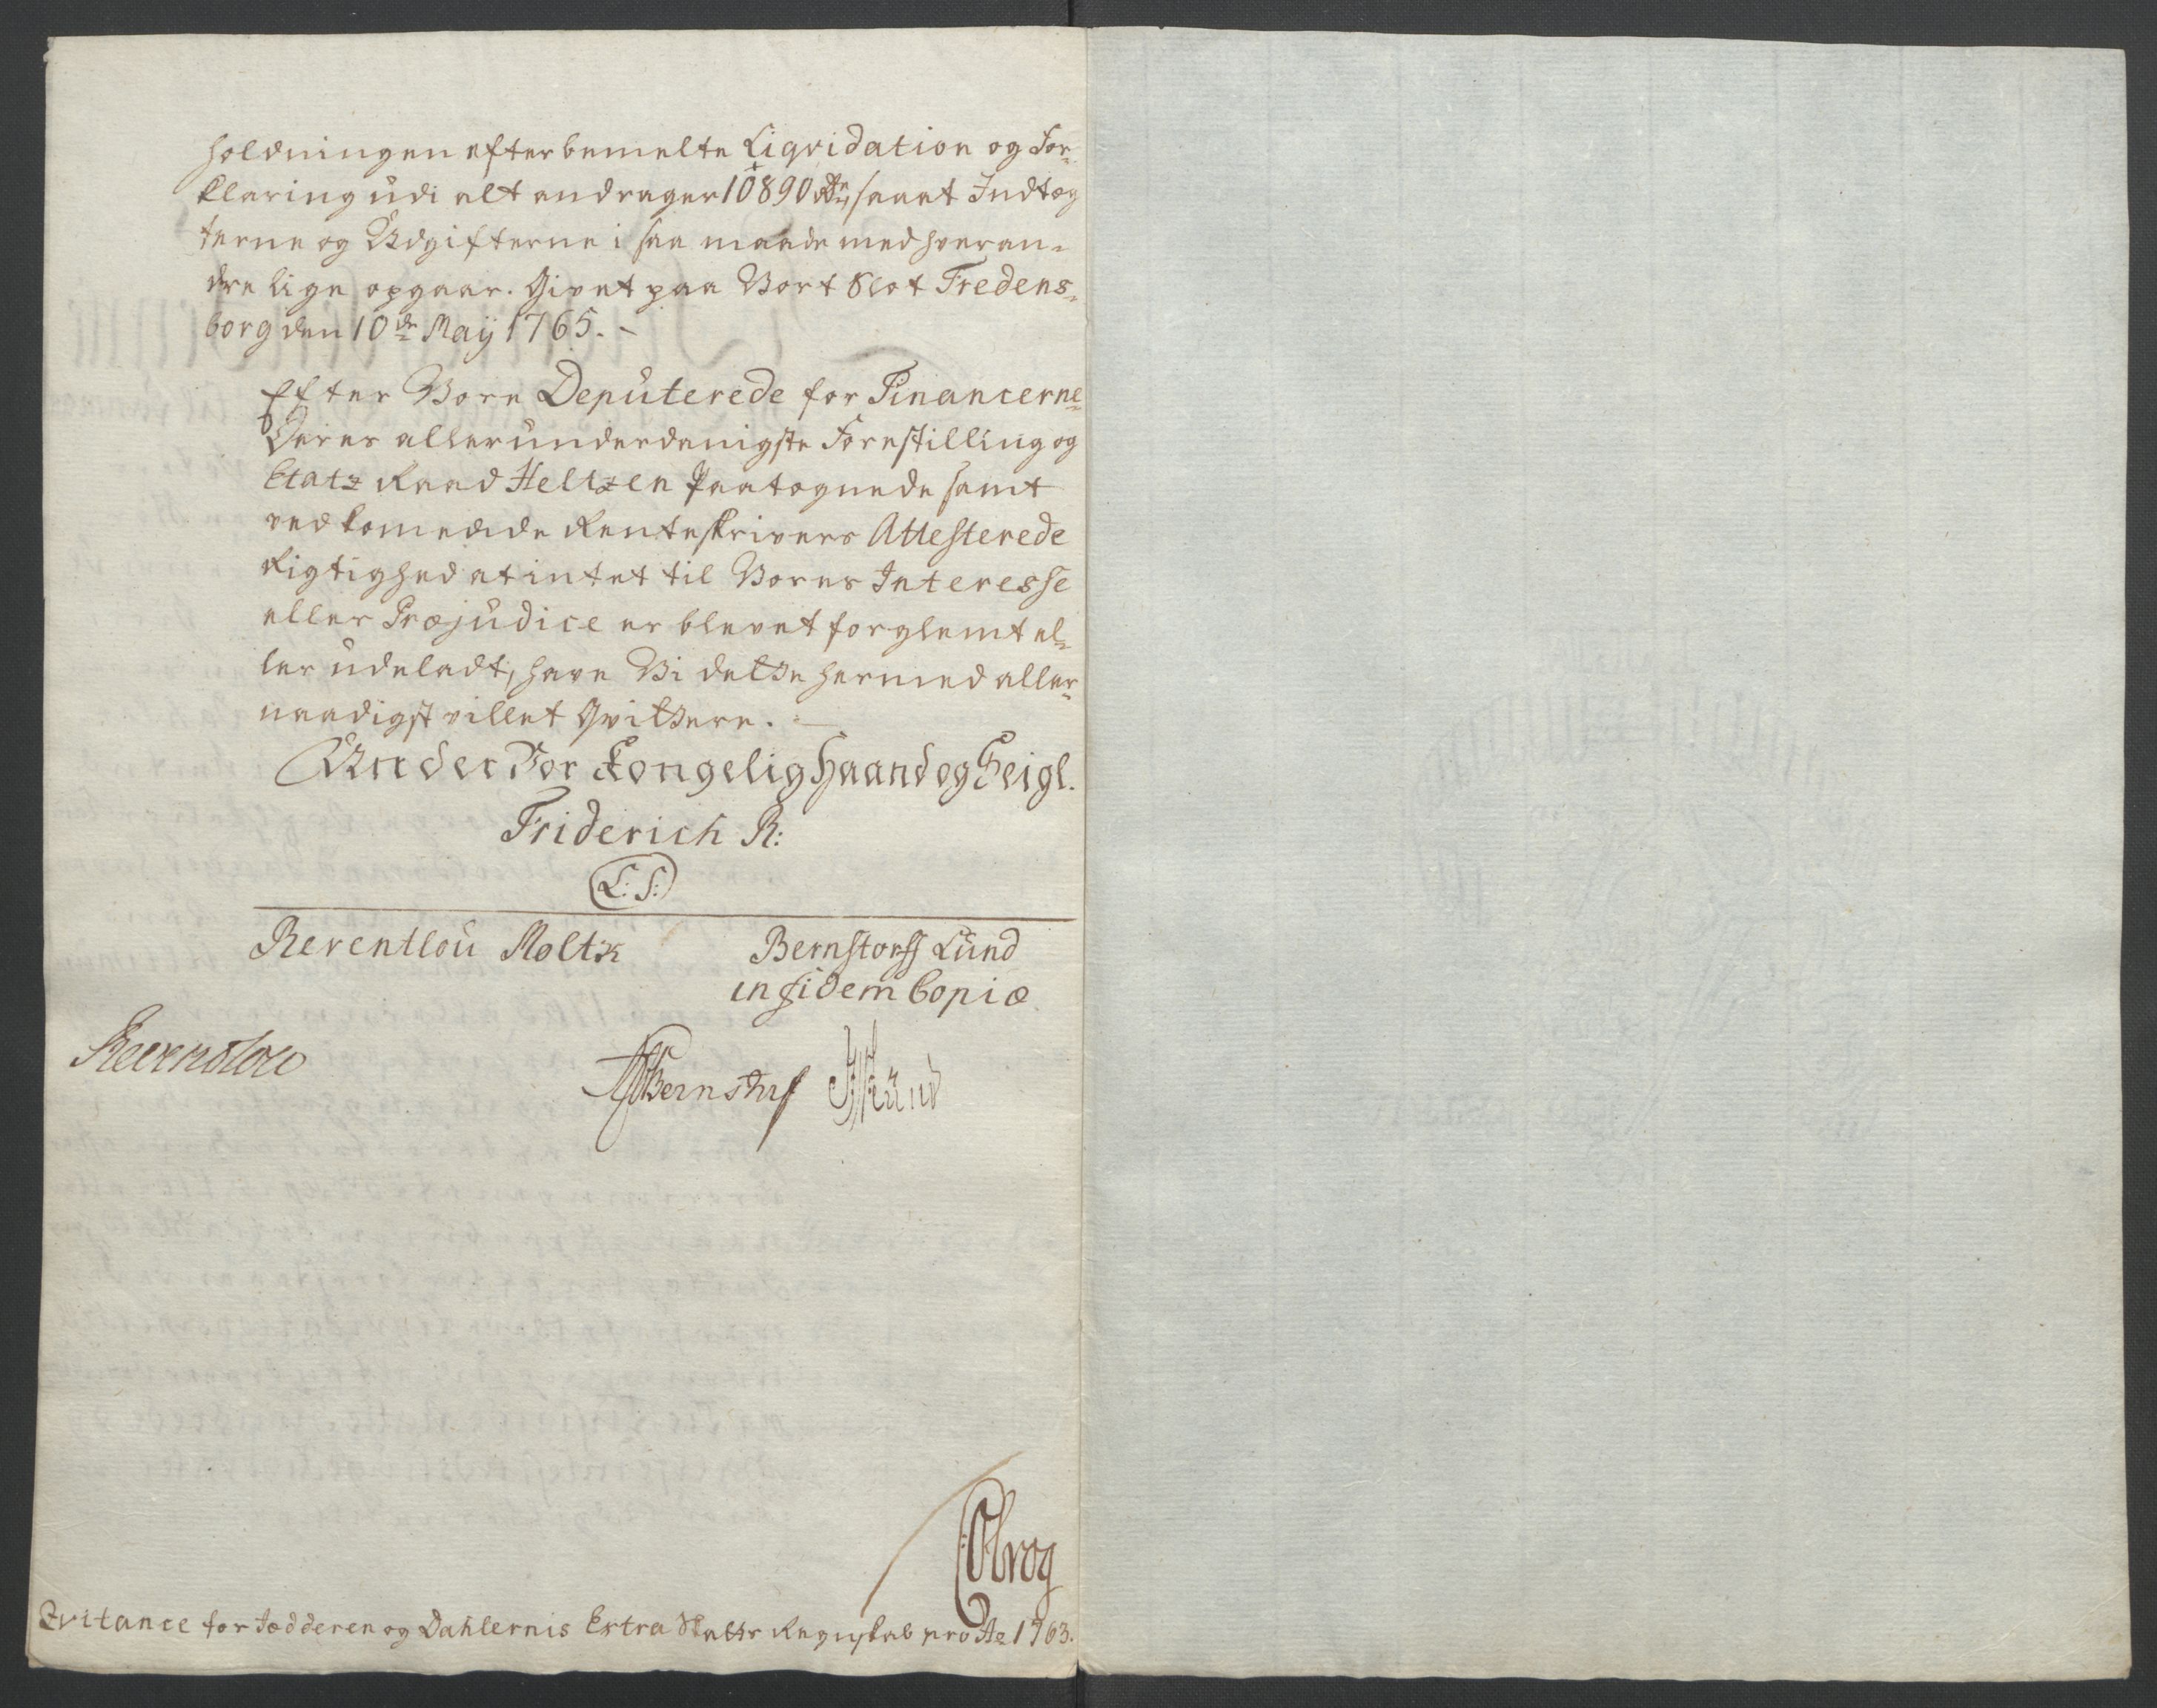 holdningen efter bemelte Liqvidation og For-
klaring udi alt andrager 10890 Rdr, saa at Indtæg
terne og Udgifterne i saa maade med hveran-
dre lige opgaar. Givet paa Vort Slot Fredens-
borg den 10de Maÿ 1765.
Efter Vore Deputerede for Financerne
Deres allerunderdanigste Forestilling og
Etatz Raad Heltzen Paategnede samt
vedkommende Renteskrivers Attesterede
Rigtighed at intet til Vores Interesse
eller Præjudice er blevet forglemt el-
ler udeladt, have Vi dette hermed aller-
naadigst villet Qvittere.
Under Vor Kongelig Haand og Seigl.
Friderich R:
L: S:
Reventlou Moltke Bernstorff Lund
in fidem Copiæ
Reventlow Bernstorff Lund
Qvitance for Jædderen og Dahlernis Extra Skatts Regnskab pro Ao 1763.